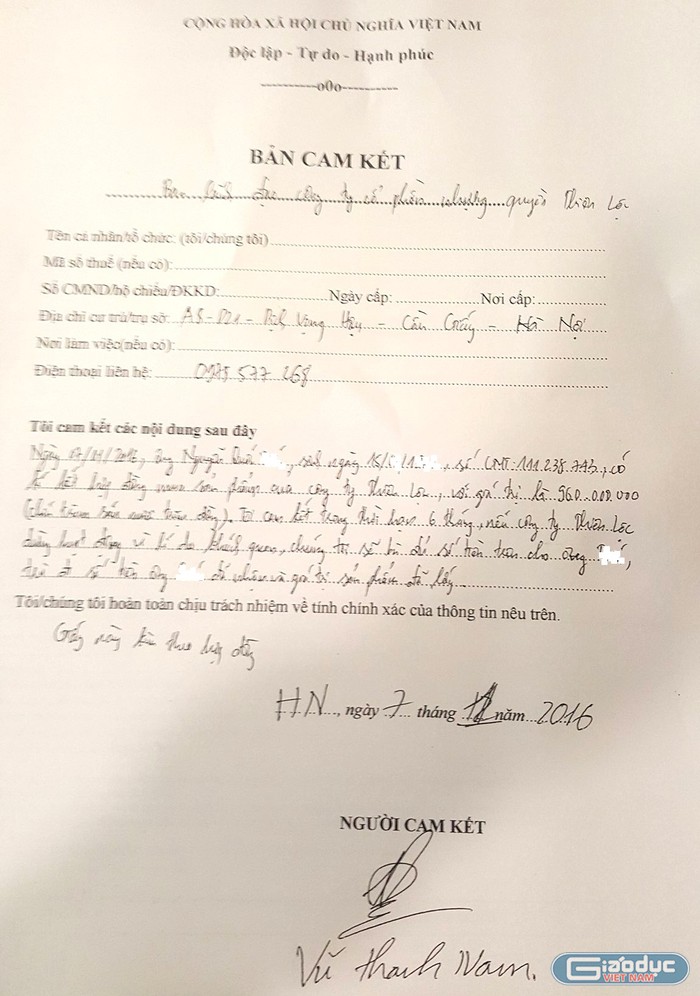 CỘNG HÒA XÃ HỘI CHỦ NGHĨA VIỆT NAM
Độc lập - Tự do - Hạnh phúc
-----------o0o-----------
BẢN CAM KẾT
công ty cổ phần nhượng quyền Thiên Lộc
Tên cá nhân/tổ chức: (tôi/chúng tôi)
Mã số thuế (nếu có):
Số CMND/hộ chiếu/ĐKKD: Ngày cấp: Nơi cấp:
Địa chỉ cư trú/trụ sở: A5 - D21 - Dịch Vọng Hậu - Cầu Giấy - Hà Nội
Nơi làm việc(nếu có):
Điện thoại liên hệ: 0975 577 268
Tôi cam kết các nội dung sau đây
Ngày 17/11/2016, ông Nguyễn, sinh ngày 15/, số CMT: 111.238.743, có
kí kết hợp đồng mua sản phẩm của công ty Thiên Lộc, với giá trị là 960.000.000
(chín trăm sáu mươi triệu đồng). Tôi cam kết trong thời hạn 6 tháng, nếu công ty Thiên Lộc
dừng hoạt động vì lí do khách quan, chúng tôi sẽ số tiền trên cho ông
trừ đi số tiền ông đã nhận và giá trị sản phẩm đã lấy
Tôi/chúng tôi hoàn toàn chịu trách nhiệm về tính chính xác của thông tin nêu trên.
Giấy này kèm theo hợp đồng
HN, ngày 7 tháng 12 năm 2016
NGƯỜI CAM KẾT
Vũ Thanh Nam.
Giáo dục
VIỆT NAM